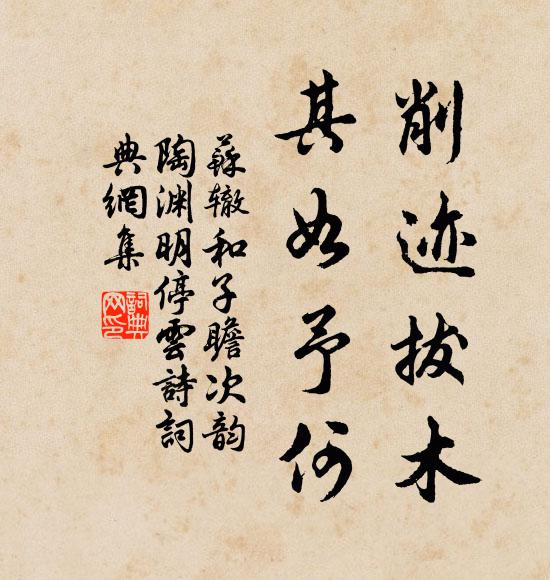 削迹拔木
其如予何
蘇辙和子瞻次韵
陶渊明停雲詩詞
典網集
詞典网印